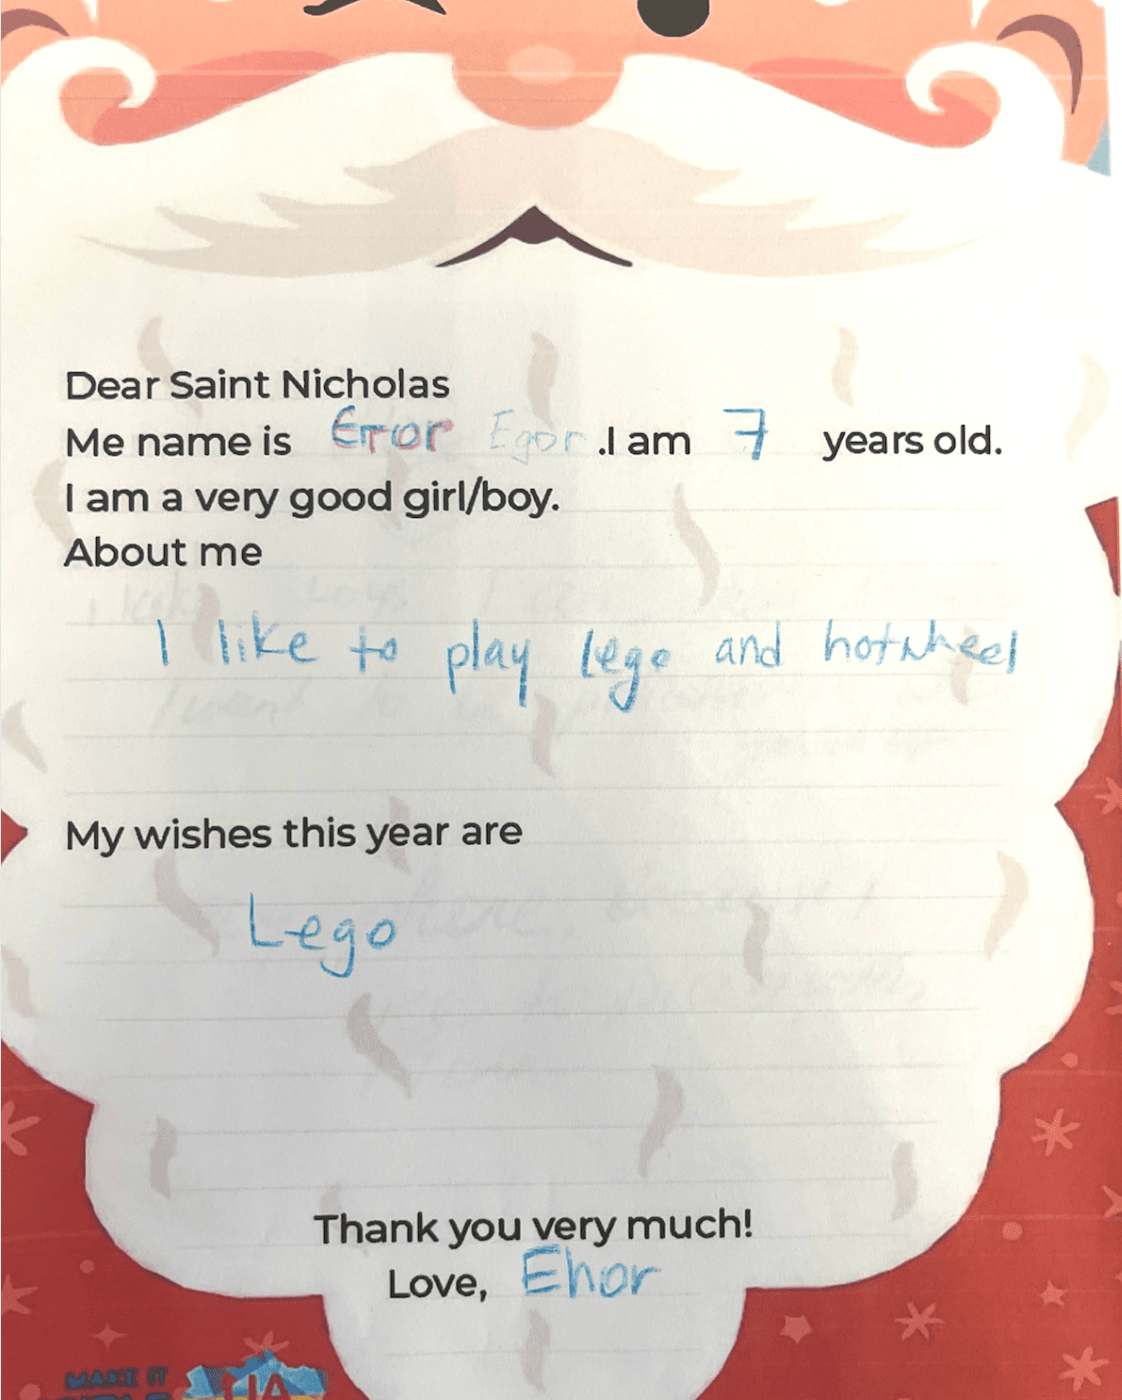 Dear Saint Nicholas
Me name is Error Egor .I am 7 years old.
I am a very good girl/boy.
About me
I like to play lego and hotwheel
My wishes this year are
Lego
Thank you very much!
Love, Ehor
MAKE IT